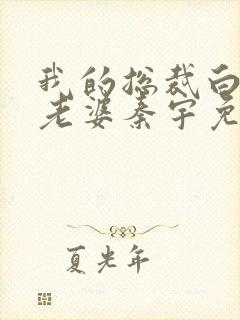 我的总裁白
老婆秦宇免
夏光年